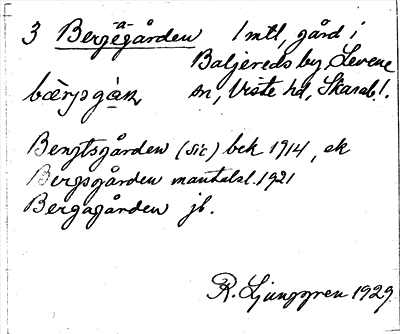 -a-
3 Bergegården 1 mtl, gård i
Baljereds by, Levene
sn, Viste hd, Skarab. l.
bæ̀rjsgàɳ
Bengtsgården (sic) bek 1914, ek
Bergsgården mantalsl. 1921
Bergagården jb.
R. Ljunggren 1929